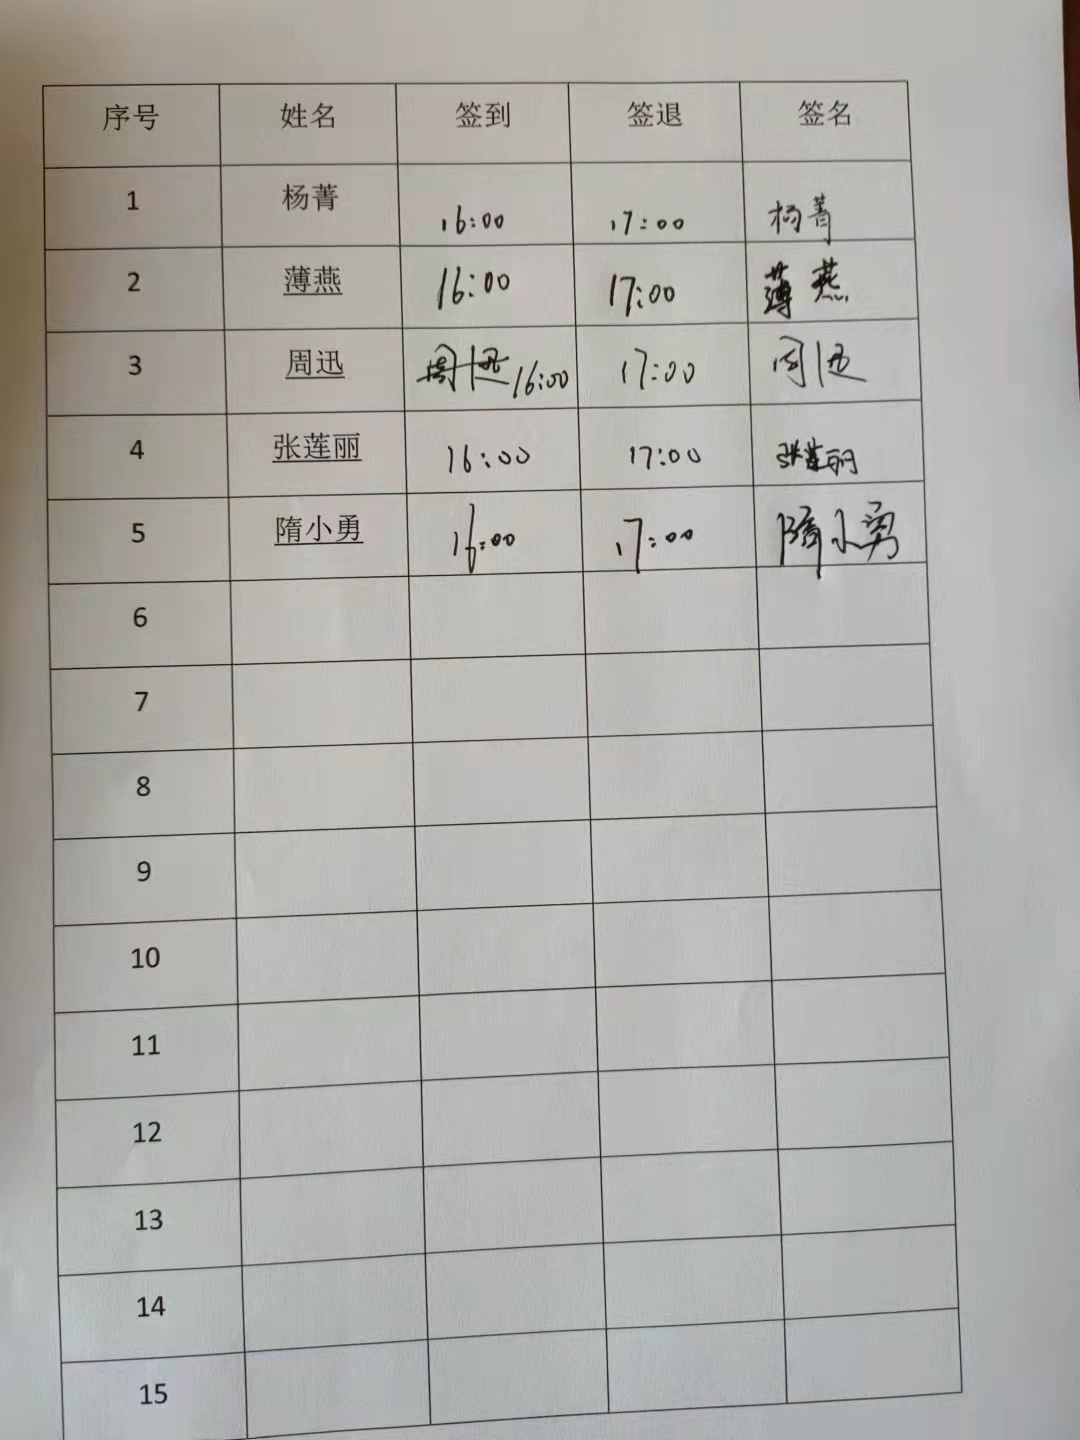 序号 姓名 签到 签退 签名
1 杨菁 16:00 17:00 杨菁
2 薄燕 16:00 17:00 薄燕
3 周迅 周迅 16:00 17:00 周迅
4 张莲丽 16:00 17:00 张莲丽
5 隋小勇 16:00 17:00 隋小勇
6
7
8
9
10
11
12
13
14
15